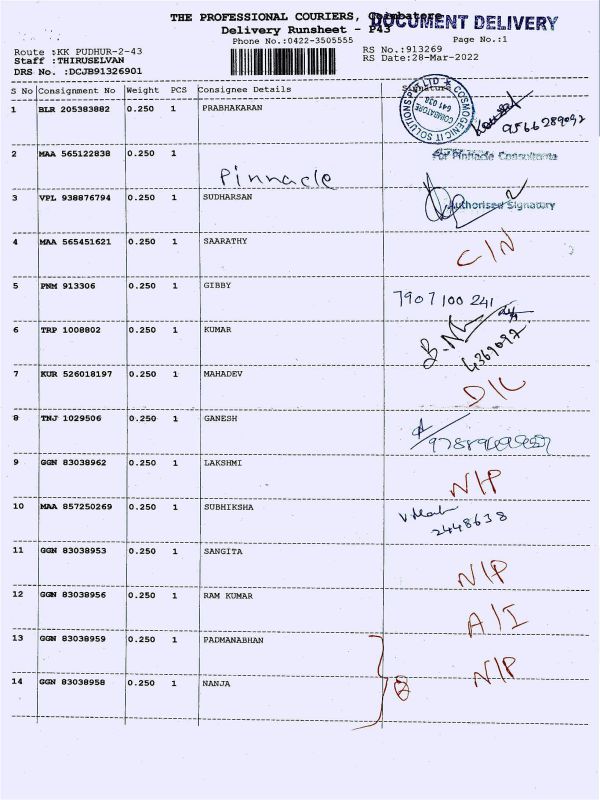 THE PROFESSIONAL COURIERS, Coimbatore
DOCUMENT DELIVERY
Delivery Runsheet - P43
Phone No.:0422-3505555 Page No.:1
Route :KK PUDHUR-2-43 RS No.:913269
Staff :THIRUSELVAN RS Date:28-Mar-2022
DRS No. :DCJB91326901
S No Consignment No Weight PCS Consignee Details Signature
1 BLR 205383882 0.250 1 PRABHAKARAN
COSMOGENIC IT SOLUTIONS PVT LTD
COIMBATORE 641 038
9566289092
2 MAA 565122838 0.250 1 Pinnacle
For Pinnacle Consultants
3 VPL 938876794 0.250 1 SUDHARSAN
Authorised Signatory
4 MAA 565451621 0.250 1 SAARATHY C/N
5 PNM 913306 0.250 1 GIBBY 7907100241
6 TRP 1008802 0.250 1 KUMAR
7 KUR 526018197 0.250 1 MAHADEV D/L
8 TNJ 1029506 0.250 1 GANESH
9 GGN 83038962 0.250 1 LAKSHMI N/P
10 MAA 857250269 0.250 1 SUBHIKSHA 2448638
11 GGN 83038953 0.250 1 SANGITA N/P
12 GGN 83038956 0.250 1 RAM KUMAR A/I
13 GGN 83038959 0.250 1 PADMANABHAN N/P
14 GGN 83038958 0.250 1 NANJA